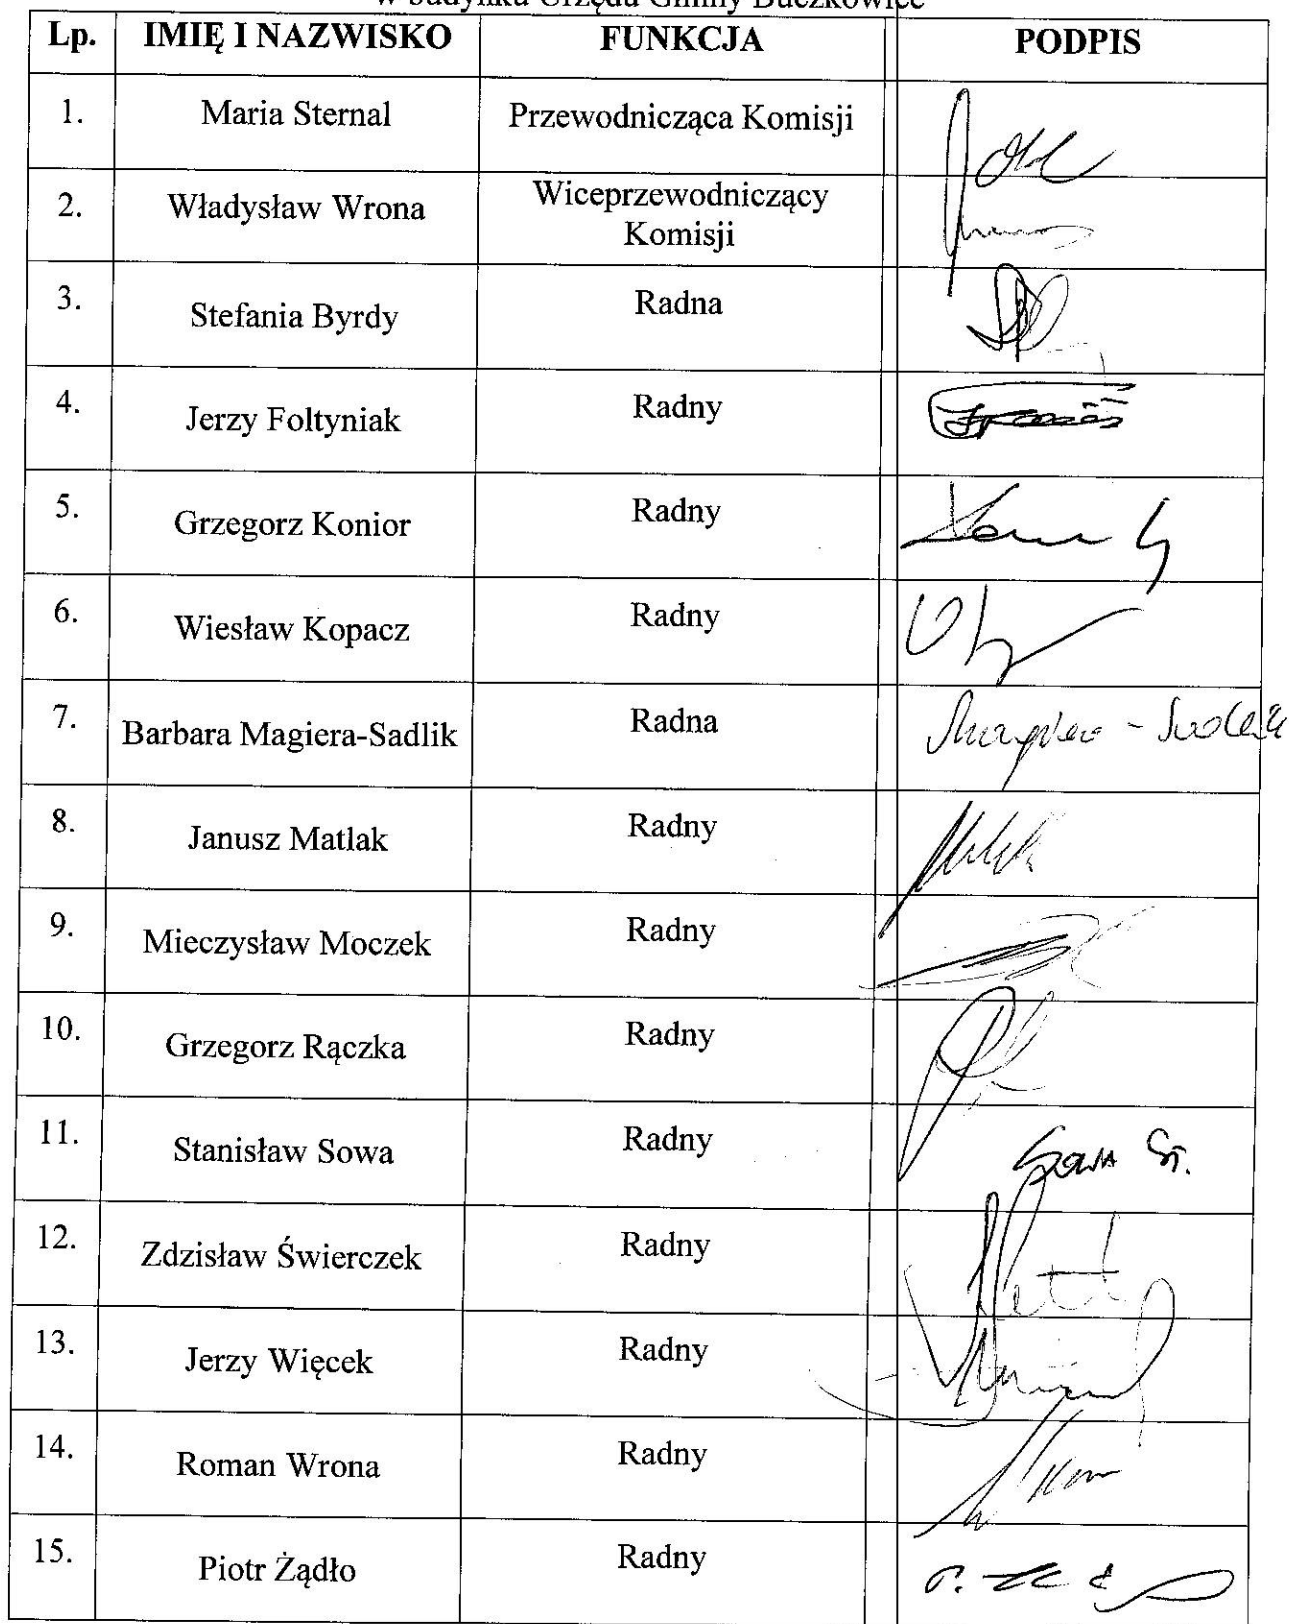 w budynku Urzędu Gminy Buczkowice
Lp. IMIĘ I NAZWISKO FUNKCJA PODPIS
1. Maria Sternal Przewodnicząca Komisji
2. Władysław Wrona Wiceprzewodniczący
Komisji
3. Stefania Byrdy Radna
4. Jerzy Foltyniak Radny
5. Grzegorz Konior Radny
6. Wiesław Kopacz Radny
7. Barbara Magiera-Sadlik Radna Magiera - Sadlik
8. Janusz Matlak Radny
9. Mieczysław Moczek Radny
10. Grzegorz Rączka Radny
11. Stanisław Sowa Radny Sowa St.
12. Zdzisław Świerczek Radny
13. Jerzy Więcek Radny
14. Roman Wrona Radny
15. Piotr Żądło Radny